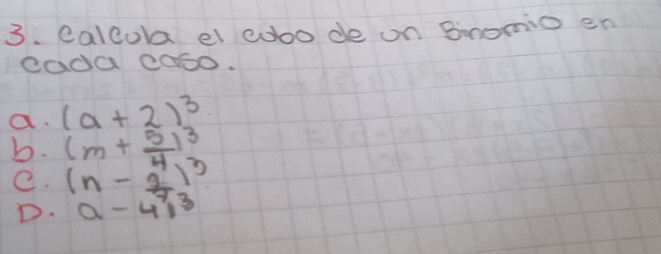 3. calcula el cubo de un Binomio en
cada caso.
a. (a + 2)³
b. (m + 5/4)³
c. (n - 2/7)³
D. a - 4)³